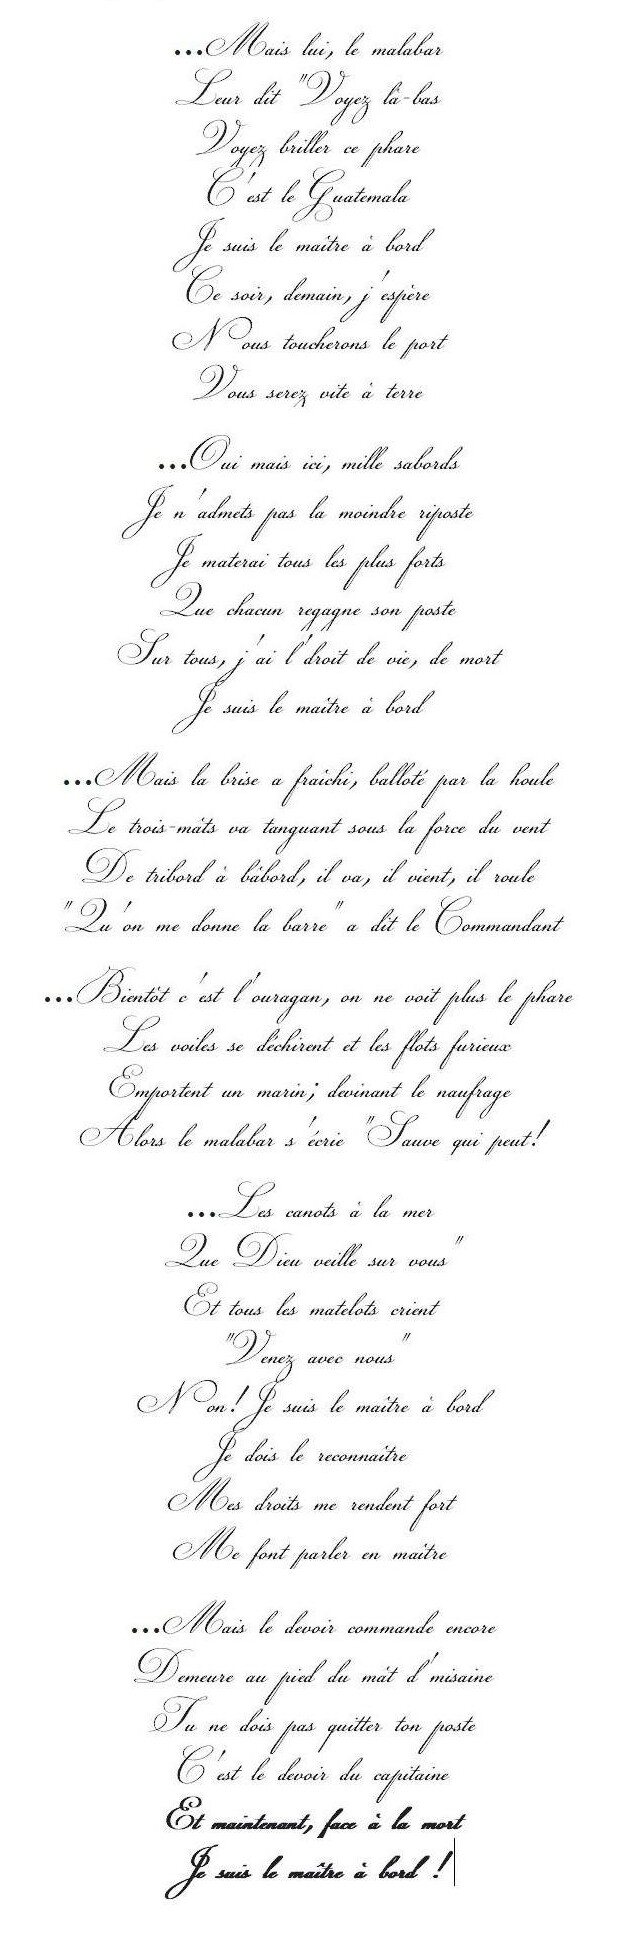 ...Mais lui, le malabar
Leur dit "Voyez là-bas
Voyez briller ce phare
C'est le Guatemala
Je suis le maître à bord
Ce soir, demain, j'espère
Nous toucherons le port
Vous serez vite à terre
...Oui mais ici, mille sabords
Je n'admets pas la moindre riposte
Je materai tous les plus forts
Que chacun regagne son poste
Sur tous, j'ai l'droit de vie, de mort
Je suis le maître à bord
...Mais la brise a fraîchi, balloté par la houle
Le trois-mâts va tanguant sous la force du vent
De tribord à bâbord, il va, il vient, il roule
"Qu'on me donne la barre" a dit le Commandant
...Bientôt c'est l'ouragan, on ne voit plus le phare
Les voiles se déchirent et les flots furieux
Emportent un marin; devinant le naufrage
Alors le malabar s'écrie "Sauve qui peut!
...Les canots à la mer
Que Dieu veille sur vous"
Et tous les matelots crient
"Venez avec nous"
Non! Je suis le maître à bord
Je dois le reconnaître
Mes droits me rendent fort
Me font parler en maître
...Mais le devoir commande encore
Demeure au pied du mât d'misaine
Tu ne dois pas quitter ton poste
C'est le devoir du capitaine
Et maintenant, face à la mort
Je suis le maître à bord !